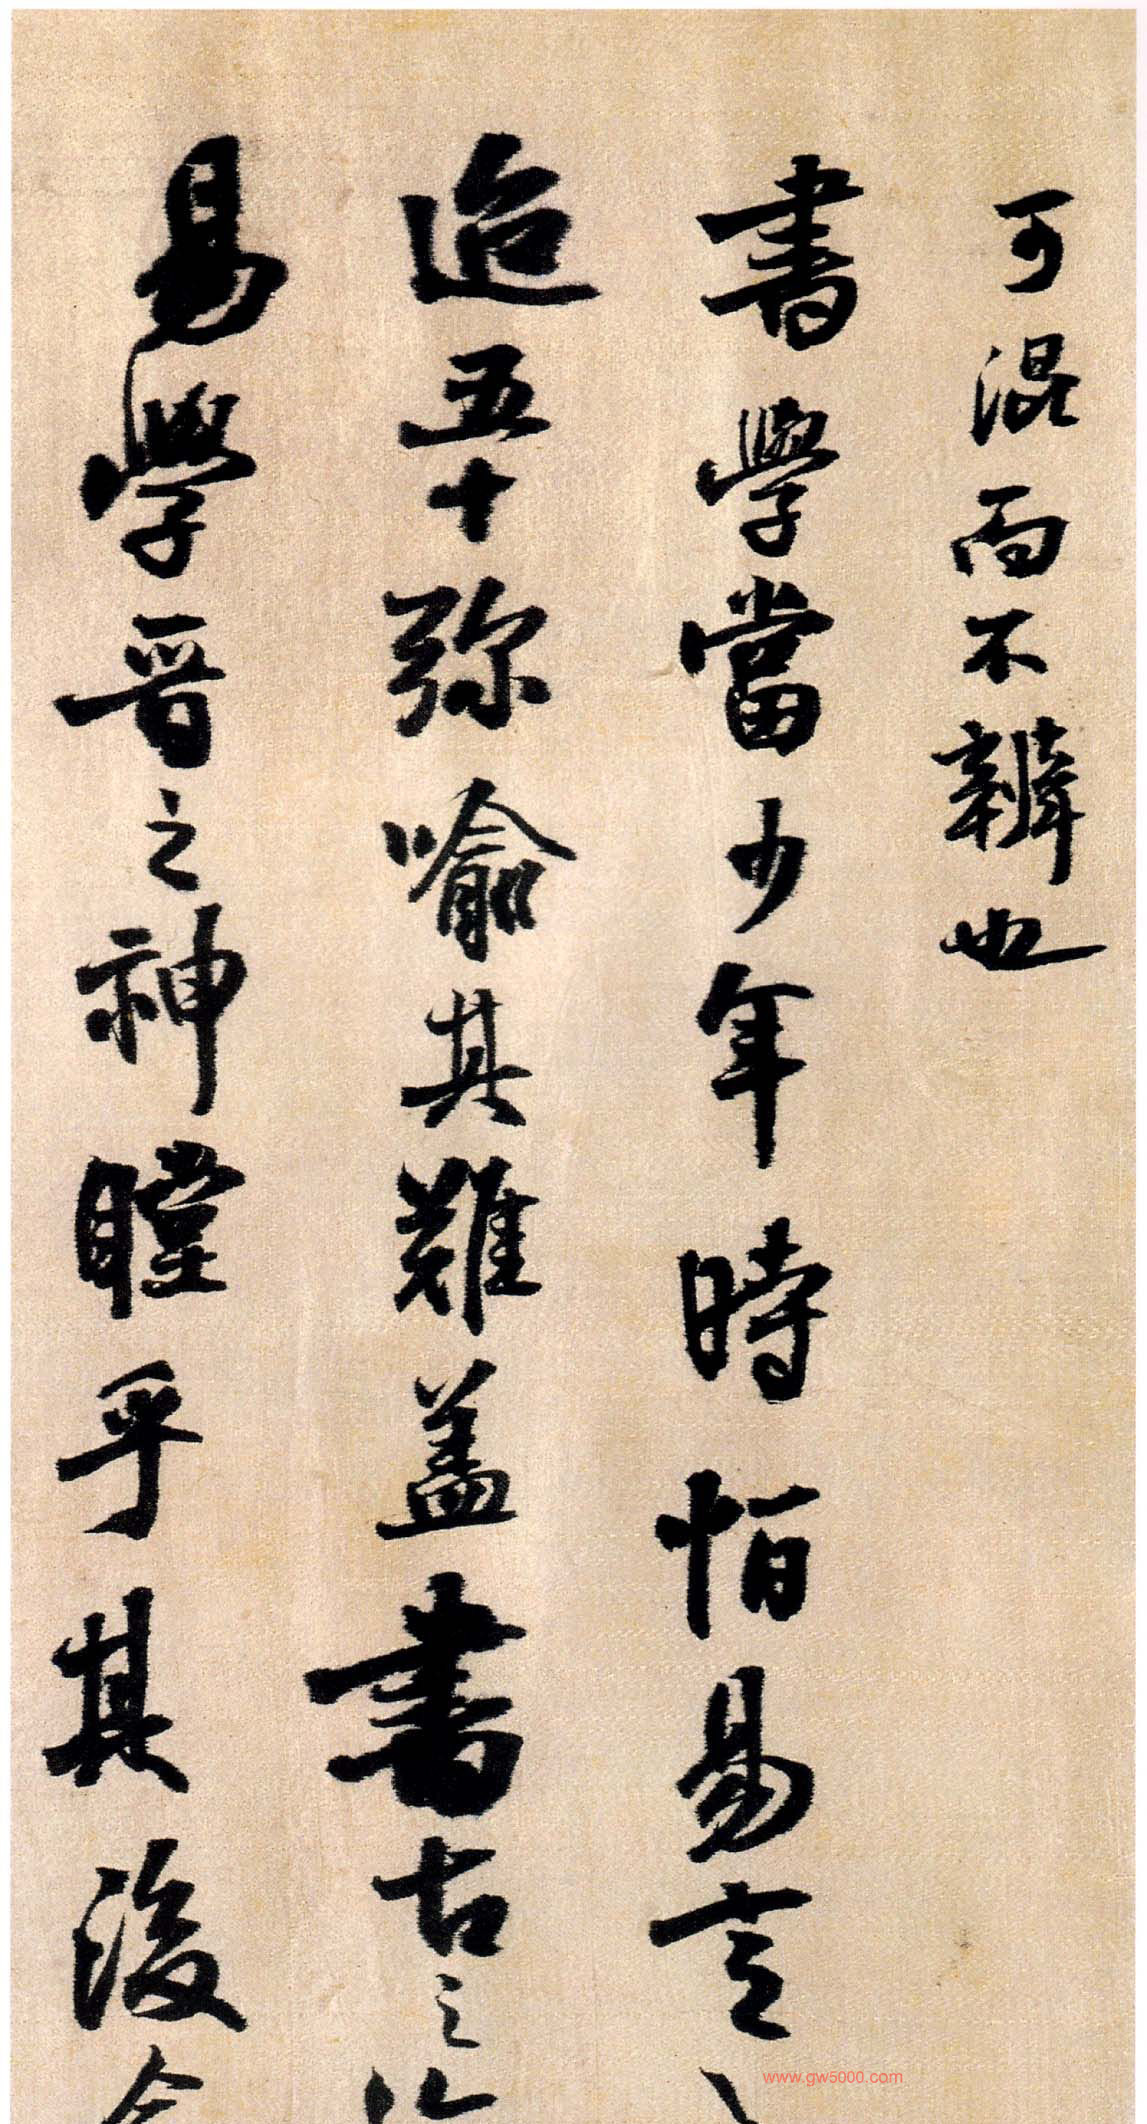 可混而不辨也
書學當少年時怕易言
迨五十弥喻其難盖書古之
易學晋之神瞠乎其後
www.gw5000.com